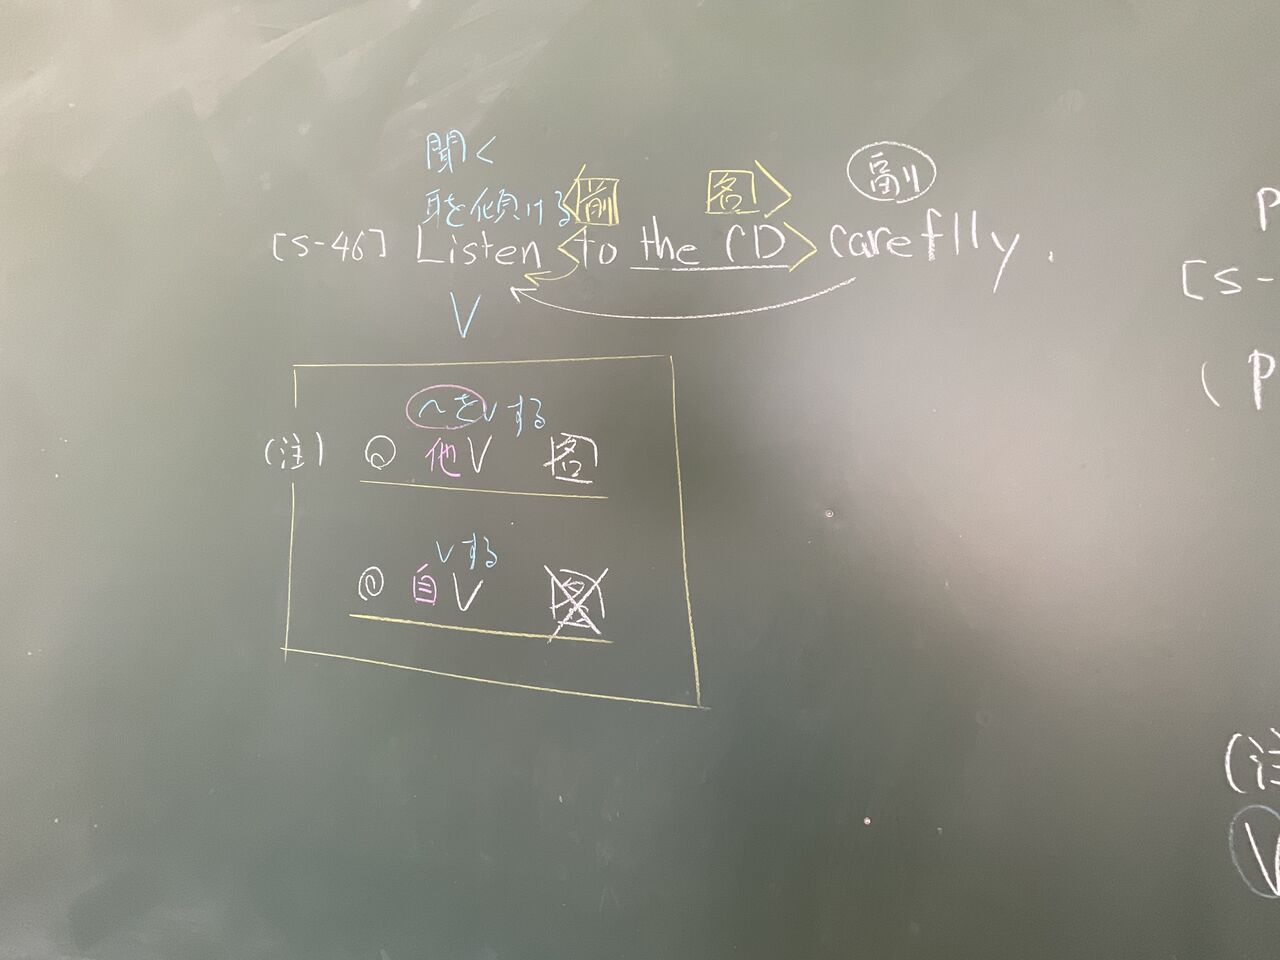 聞く
耳を傾ける 前 名 副
[S-46] Listen <to the CD> careflly.
V
~をVする
(注) 他V 名
Vする
自V 名
P
[S-
(P
(注
V